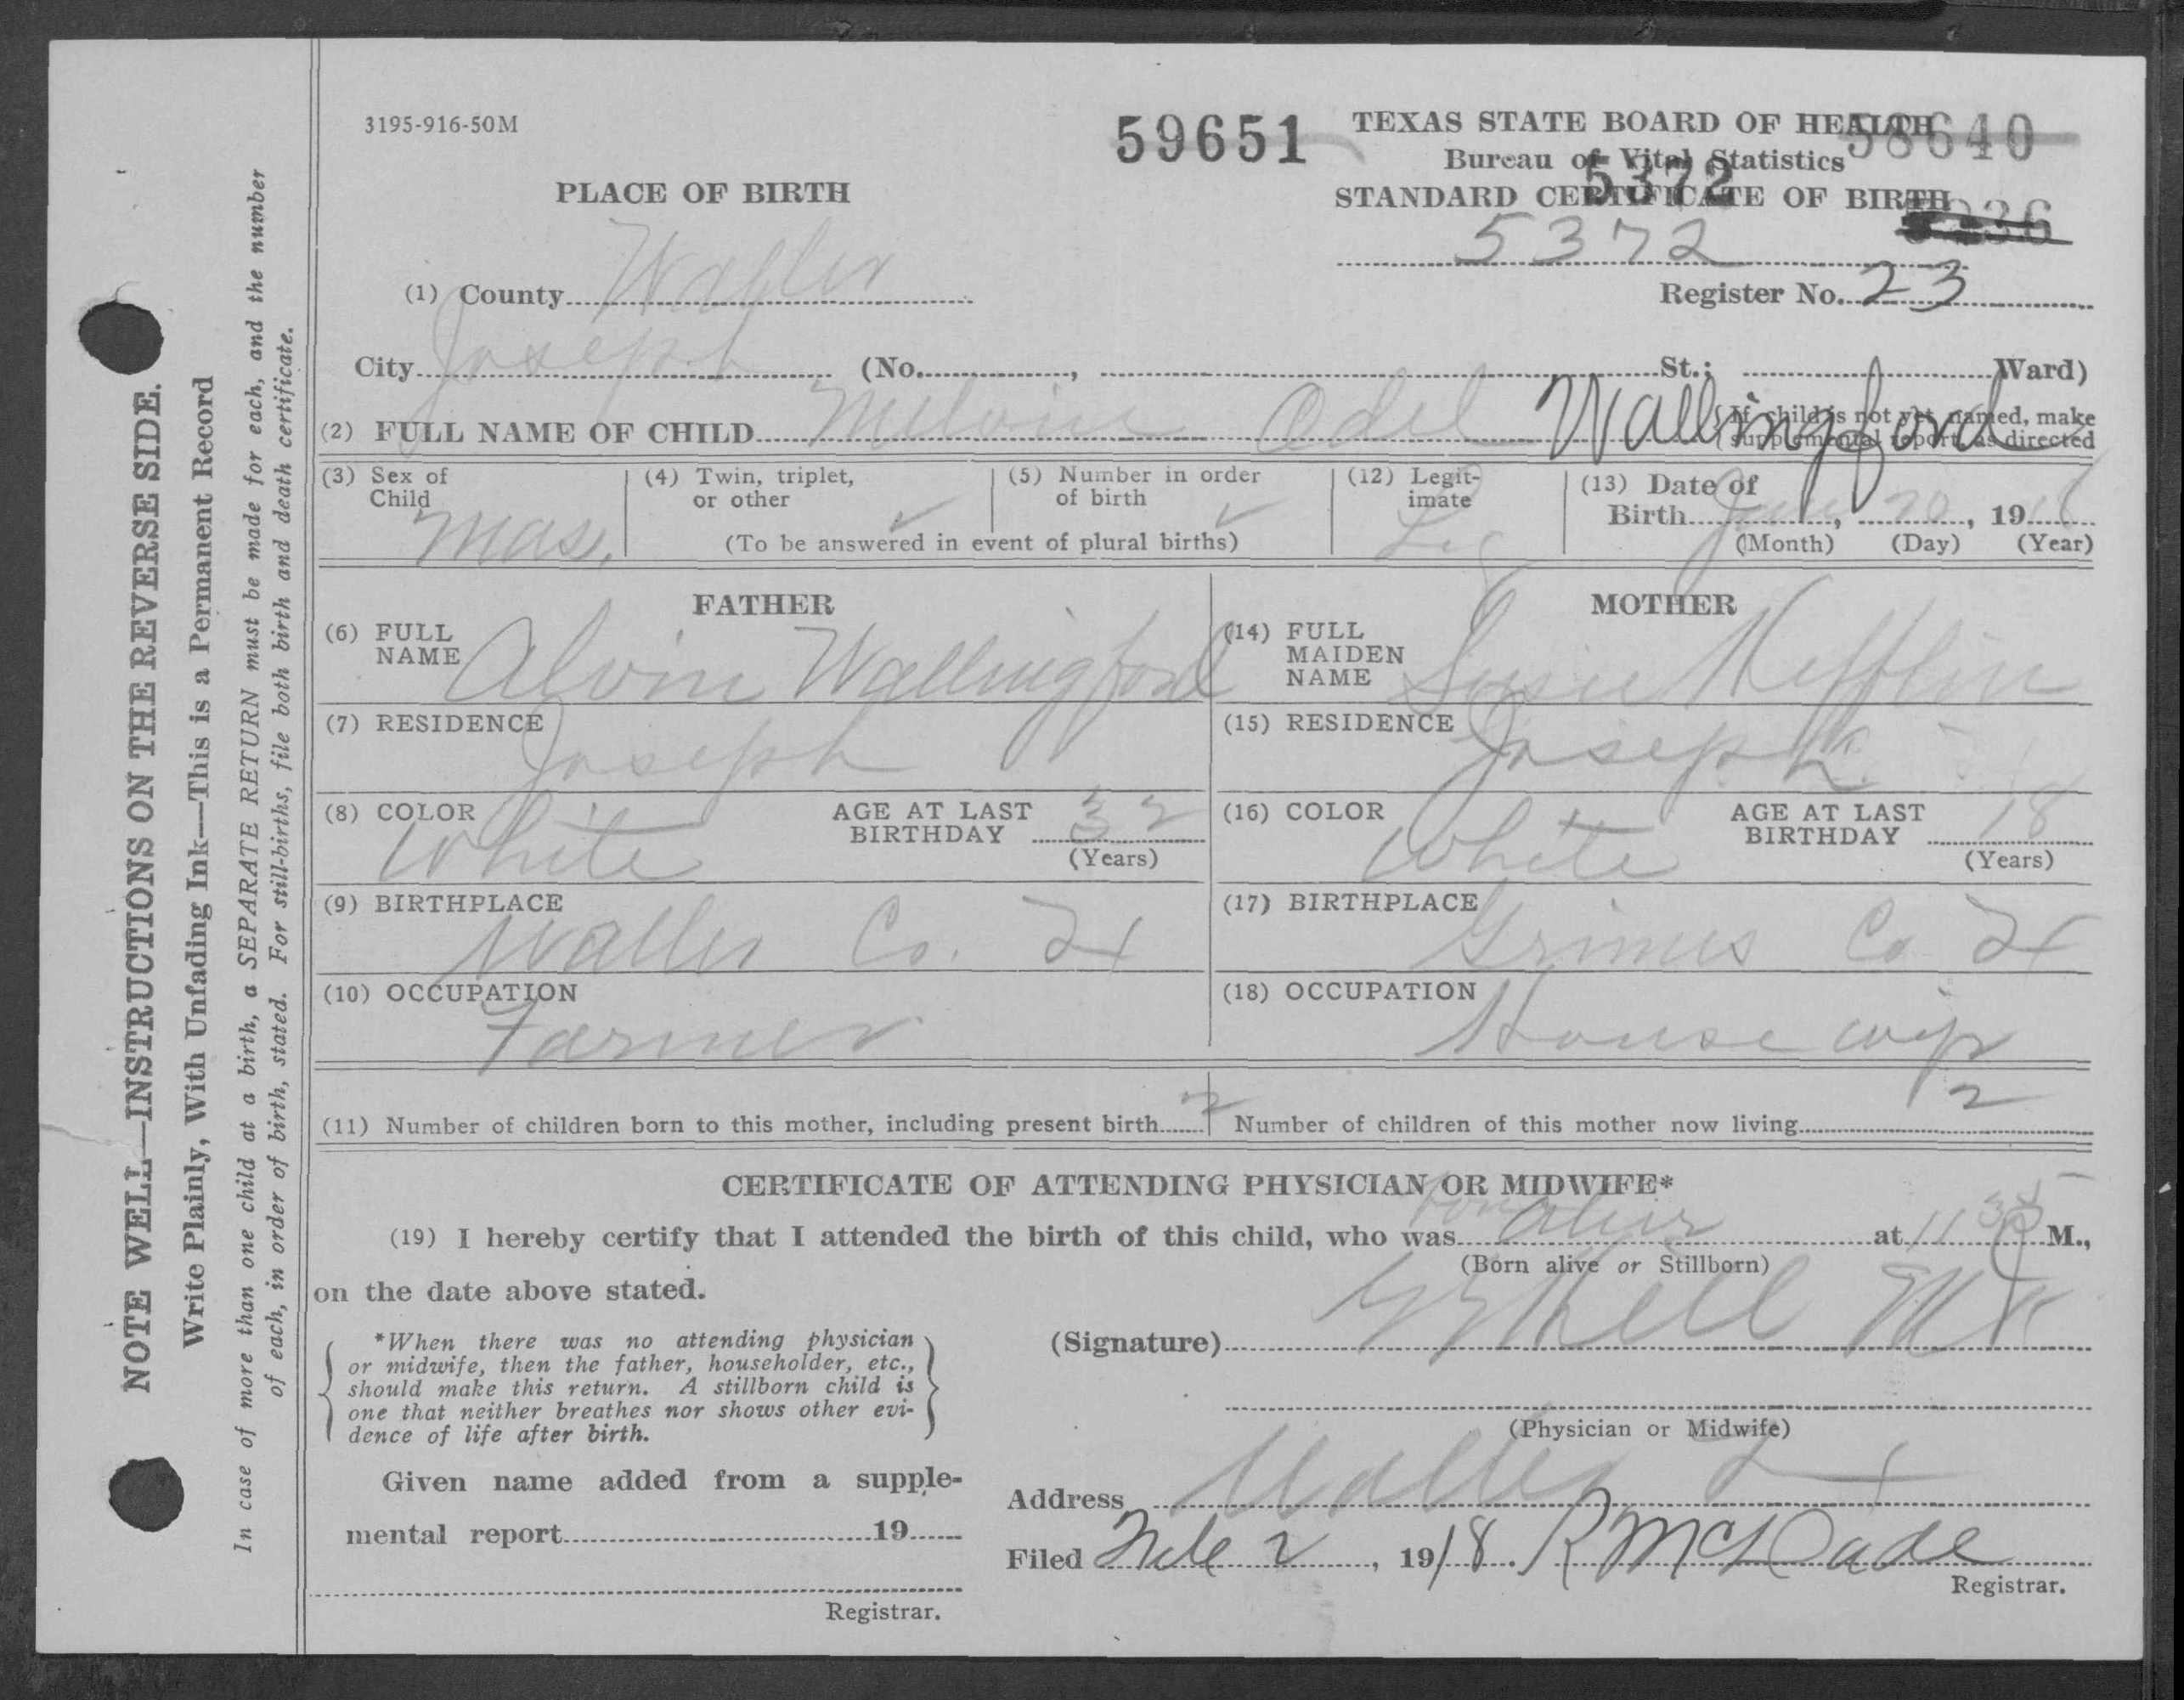 3195-916-50M
59651
TEXAS STATE BOARD OF HEALTH
58640
Bureau of Vital Statistics
5372
STANDARD CERTIFICATE OF BIRTH
PLACE OF BIRTH
5372
(1) County Waller
Register No. 23
City Joseph (No. , St.; Ward)
(2) FULL NAME OF CHILD Melvin Odel Wallingford
{ If child is not yet named, make
supplemental report, as directed
(3) Sex of Child Mas.
(4) Twin, triplet, or other ✓
(5) Number in order of birth ✓
(To be answered in event of plural births)
(12) Legitimate Leg
(13) Date of Birth , 20, 1918
(Month) (Day) (Year)
FATHER
(6) FULL NAME Alvin Wallingford
(7) RESIDENCE Joseph
(8) COLOR White AGE AT LAST BIRTHDAY 32
(Years)
(9) BIRTHPLACE Waller Co. Tx
(10) OCCUPATION Farmer
MOTHER
(14) FULL MAIDEN NAME Susie Hefflin
(15) RESIDENCE Joseph
(16) COLOR White AGE AT LAST BIRTHDAY 18
(Years)
(17) BIRTHPLACE Grimes Co Tx
(18) OCCUPATION House wife
(11) Number of children born to this mother, including present birth 2 Number of children of this mother now living 2
CERTIFICATE OF ATTENDING PHYSICIAN OR MIDWIFE*
(19) I hereby certify that I attended the birth of this child, who was Born alive at 11 35 P M.,
(Born alive or Stillborn)
on the date above stated.
*When there was no attending physician
or midwife, then the father, householder, etc.,
should make this return. A stillborn child is
one that neither breathes nor shows other evi-
dence of life after birth.
(Signature)
(Physician or Midwife)
Given name added from a supple-
mental report 19
Registrar.
Address Waller Tx
Filed 2, 1918. R McDade
Registrar.
NOTE WELL—INSTRUCTIONS ON THE REVERSE SIDE.
Write Plainly, With Unfading Ink—This is a Permanent Record
In case of more than one child at a birth, a SEPARATE RETURN must be made for each, and the number
of each, in order of birth, stated. For still-births, file both birth and death certificate.